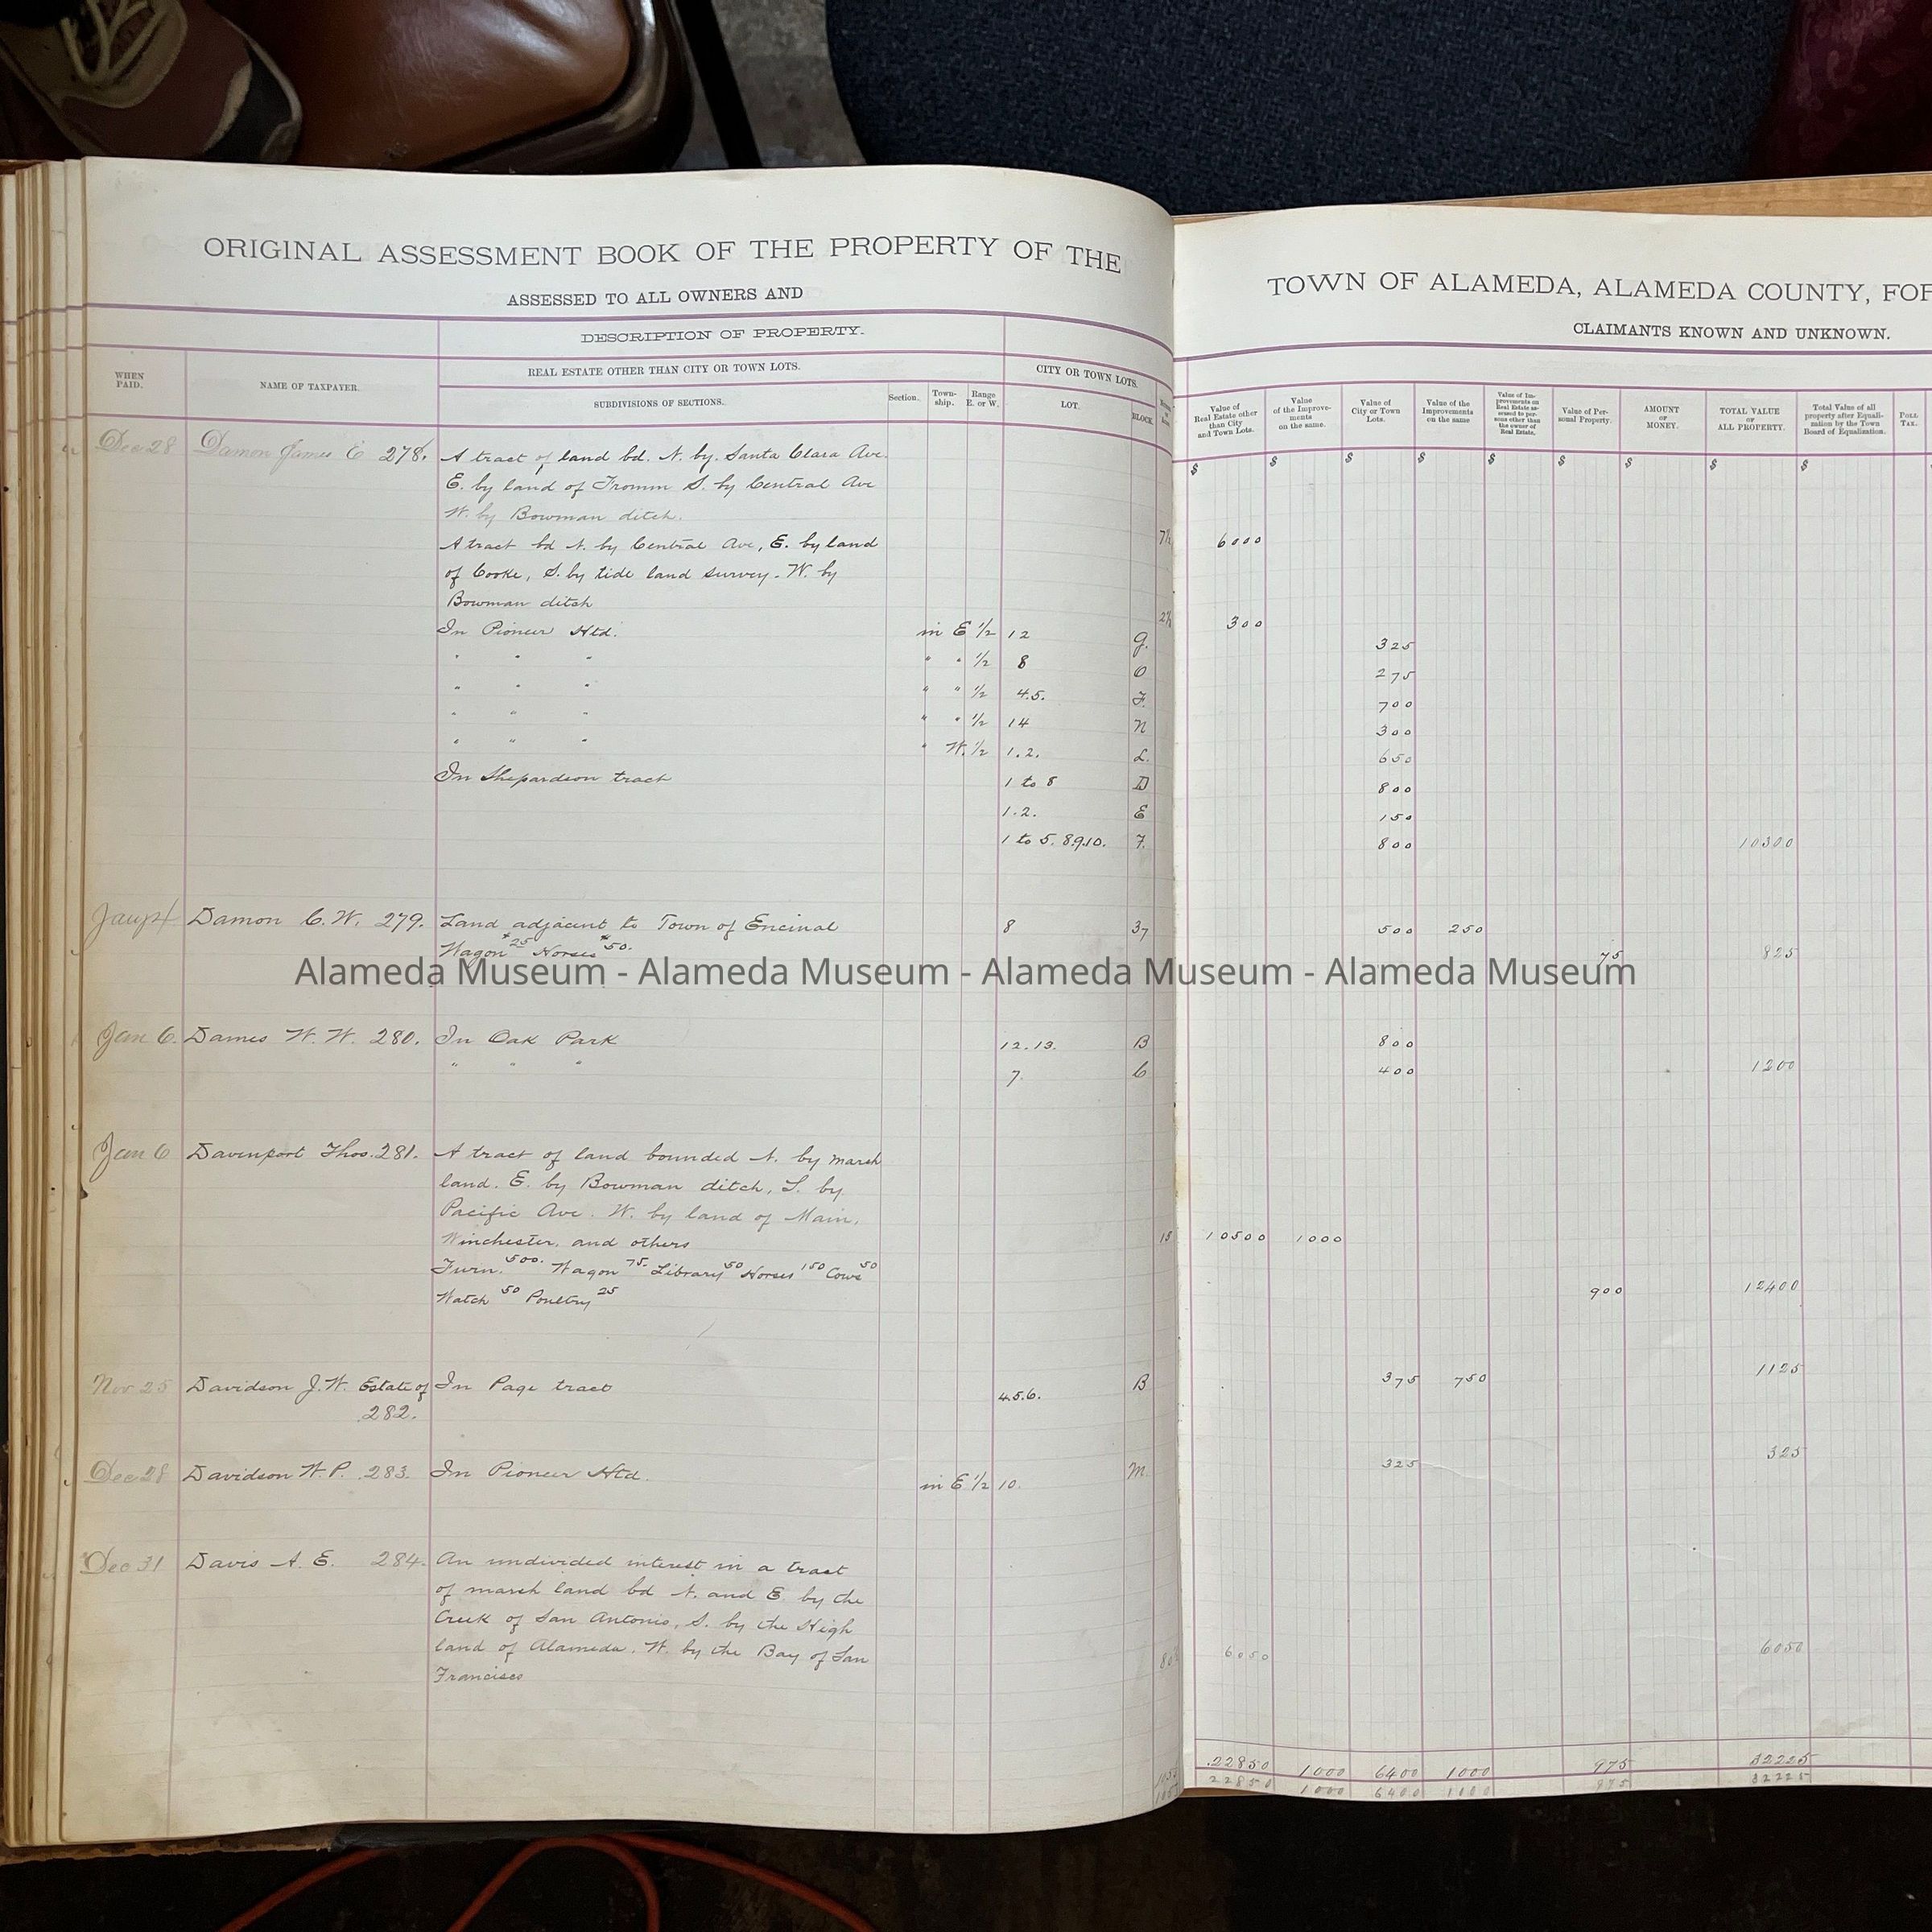 ORIGINAL ASSESSMENT BOOK OF THE PROPERTY OF THE
ASSESSED TO ALL OWNERS AND
DESCRIPTION OF PROPERTY.
REAL ESTATE OTHER THAN CITY OR TOWN LOTS. CITY OR TOWN LOTS.
WHEN PAID. NAME OF TAXPAYER. SUBDIVISIONS OF SECTIONS. Section. Town-ship. Range E. or W. LOT. BLOCK.
TOWN OF ALAMEDA, ALAMEDA COUNTY, FOR
CLAIMANTS KNOWN AND UNKNOWN.
Value of Real Estate other than City and Town Lots. Value of the Improvements on the same. Value of City or Town Lots. Value of the Improvements on the same Value of Improvements on Real Estate assessed to persons other than the owner of Real Estate. Value of Personal Property. AMOUNT OF MONEY. TOTAL VALUE OF ALL PROPERTY. Total Value of all property after Equalization by the Town Board of Equalization. POLL TAX.
$ $ $ $ $ $ $ $ $
Dec 28 Damon James C 278. A tract of land bd. N. by. Santa Clara Ave.
E. by land of Fromm S. by Central Ave
W. by Bowman ditch. 7½ 6000
A tract bd N. by Central Ave, E. by land
of Cooke, S. by tide land survey. W. by
Bowman ditch 300
In Pioneer Htd. in E ½ 12 G. 325
" " " " " ½ 8 O 275
" " " " " ½ 4.5. F. 700
" " " " " ½ 14 N 300
" " " " W. ½ 1.2. L. 650
In Shepardson tract 1 to 8 D 800
1.2. E 150
1 to 5. 8.9.10. F. 800 10300
Damon C. W. 279. Land adjacent to Town of Encinal 8 37 500 250
Wagon $25 Horses $50. 75 825
Alameda Museum - Alameda Museum - Alameda Museum - Alameda Museum
Jan 6. Dames W. W. 280. In Oak Park 12.13. B 800
" " " 7. C 400 1200
Jan 6 Davenport Thos. 281. A tract of land bounded N. by marsh
land. E. by Bowman ditch, S. by
Pacific Ave. W. by land of Main,
Winchester, and others 15 10500 1000
Furn. 500. Wagon 75. Library 50 Horses 150 Cows 50
Watch 50 Poultry 25 900 12400
Nov 25 Davidson J. W. Estate of In Page tract 4.5.6. B 375 750 1125
282.
Dec 28 Davidson W. P. 283. In Pioneer Htd. in E ½ 10. M. 325 325
Dec 31 Davis A. E. 284. An undivided interest in a tract
of marsh land bd N. and E. by the
Creek of San Antonio, S. by the High
land of Alameda. W. by the Bay of San
Francisco 6050 6050
22850 1000 6400 1000 975 32225
22850 1000 6400 1000 975 32225